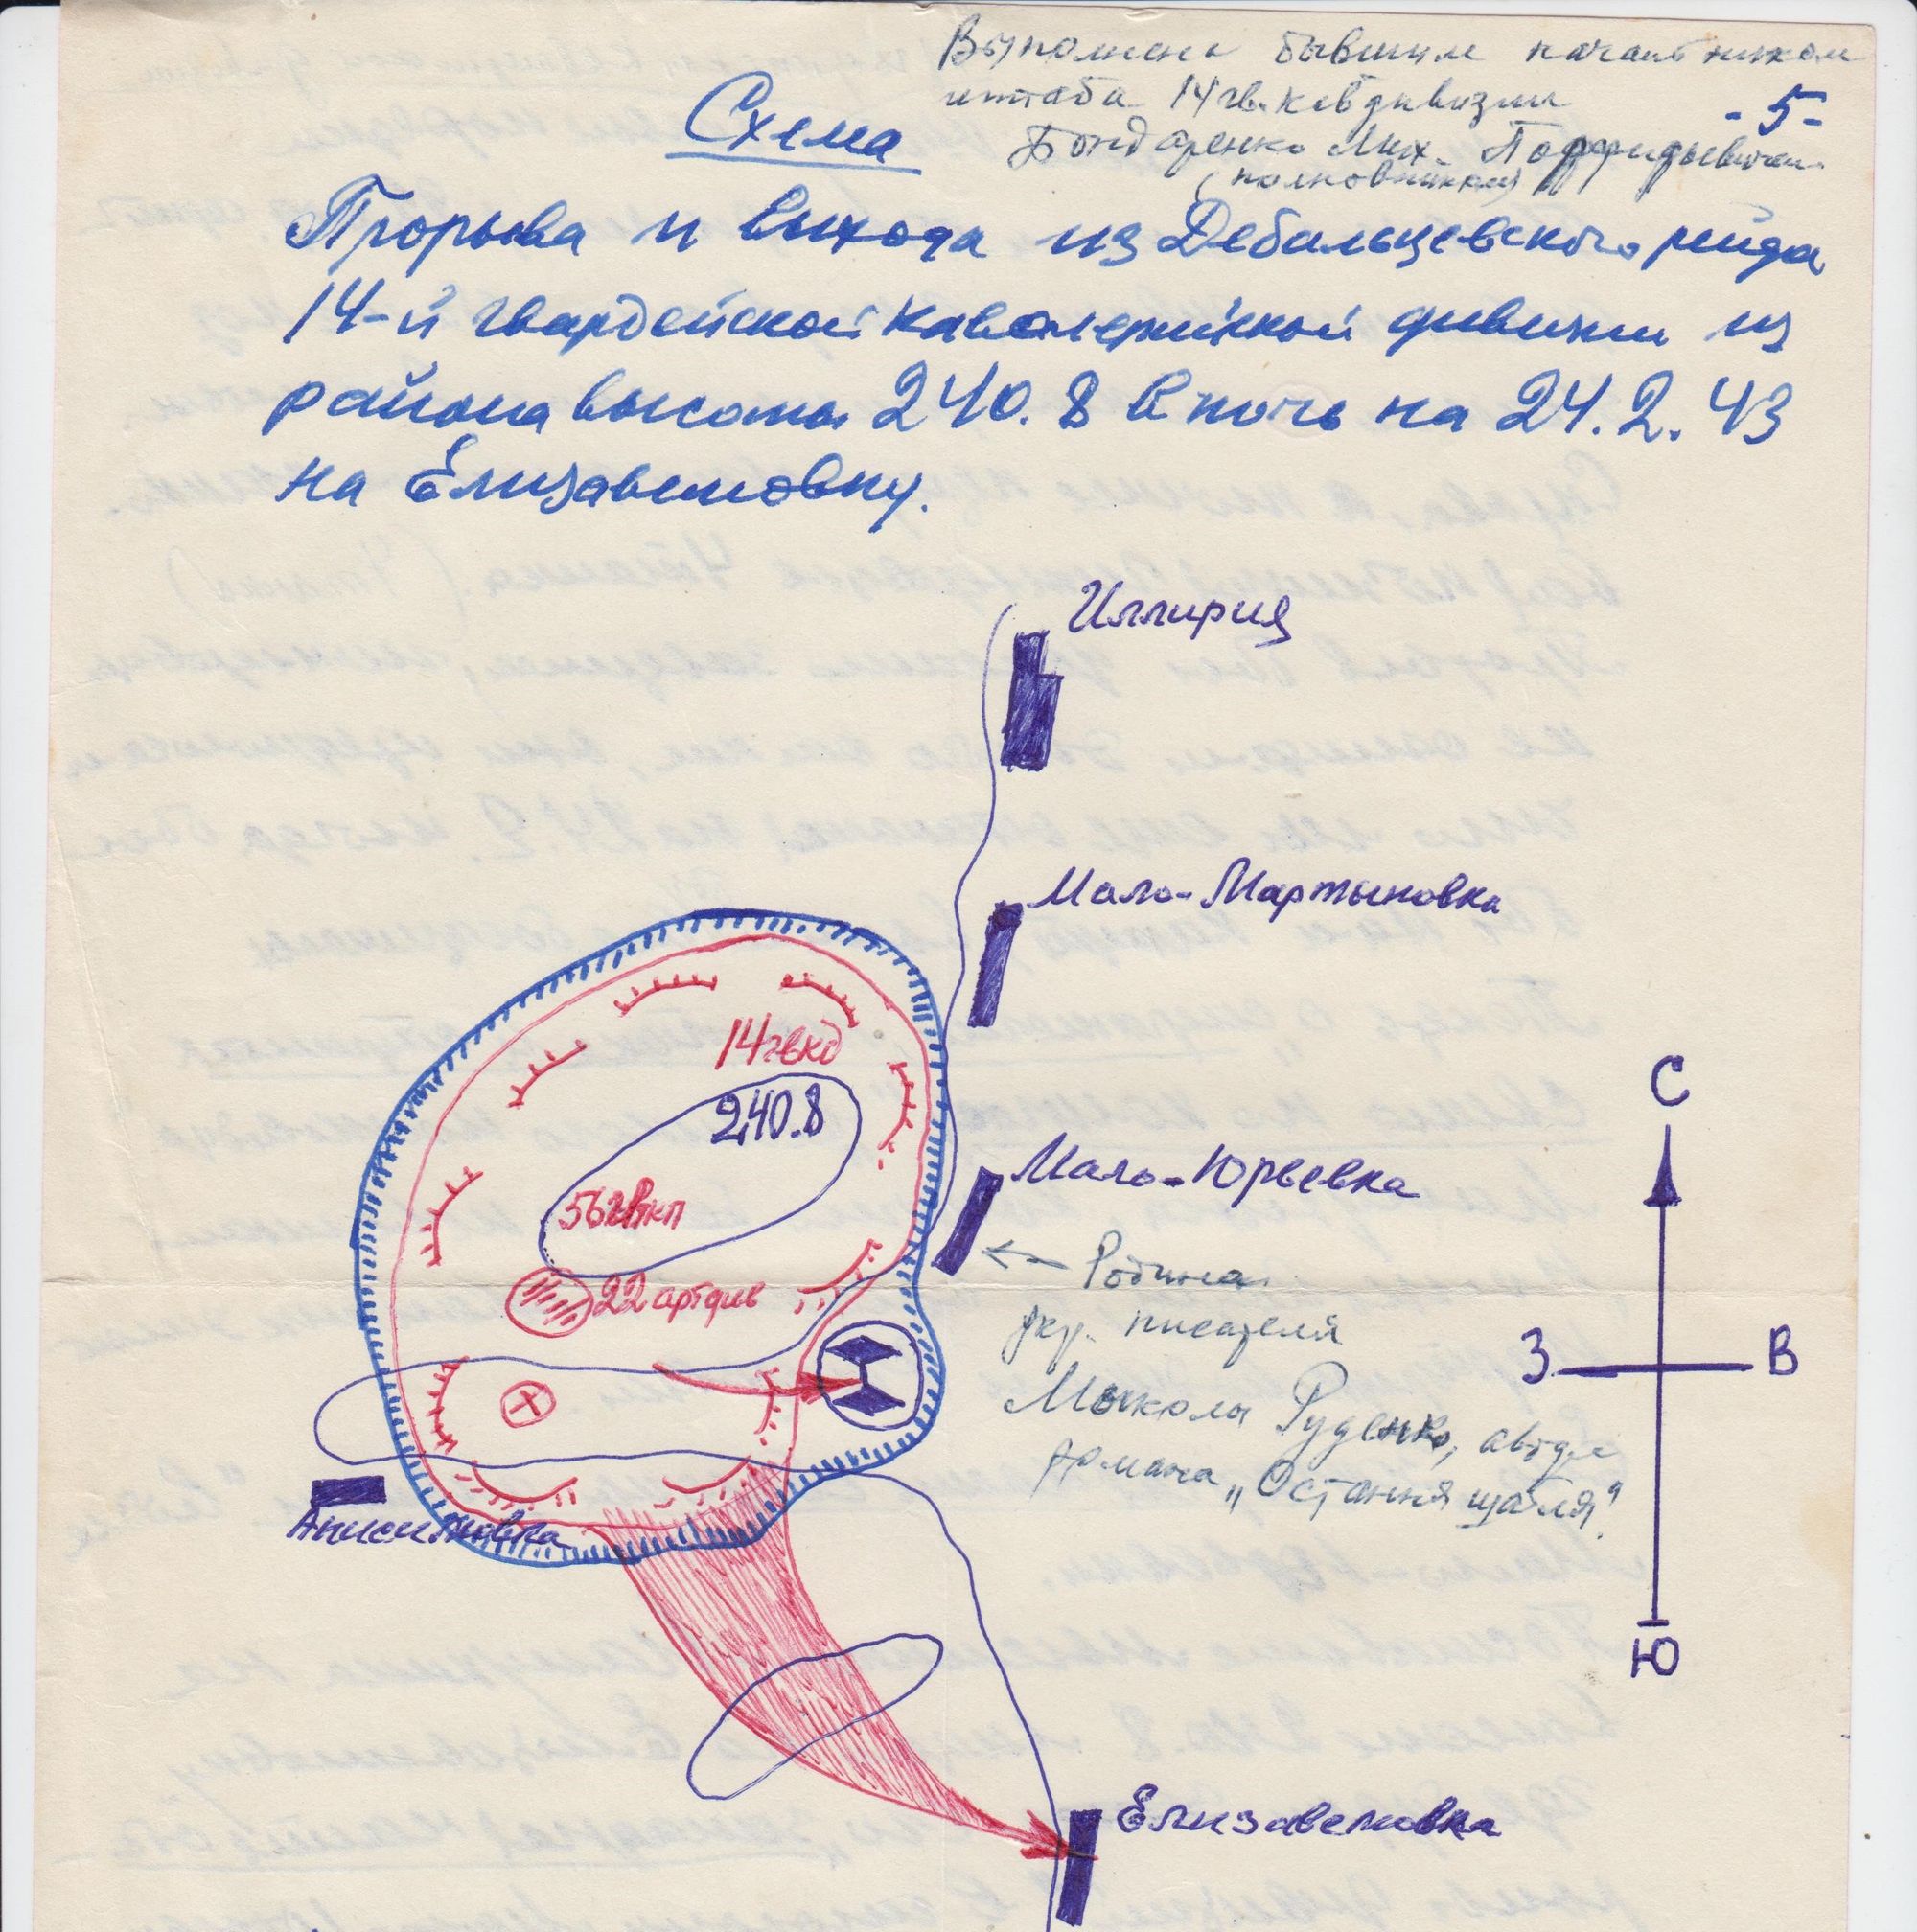 Выполнена бывшим начальником
штаба 14 гв. кавдивизии
- 5 -
Бондаренко Мих. Порфирьевичем
(полковником)
Схема
Прорыва и выхода из Дебальцевского рейда
14-й гвардейской кавалерийской дивизии из
района высоты 240.8 в ночь на 24.2.43
на Елизаветовку.
Иллирия
Мало-Мартыновка
14 гвкд
240.8
С
Мало-Юрьевка
56 гвкп
← Родина
22 артдив
укр. писателя
З
В
Миколы Руденко, автора
романа „Остання шабля"
Анисимовка
Ю
Елизаветовка